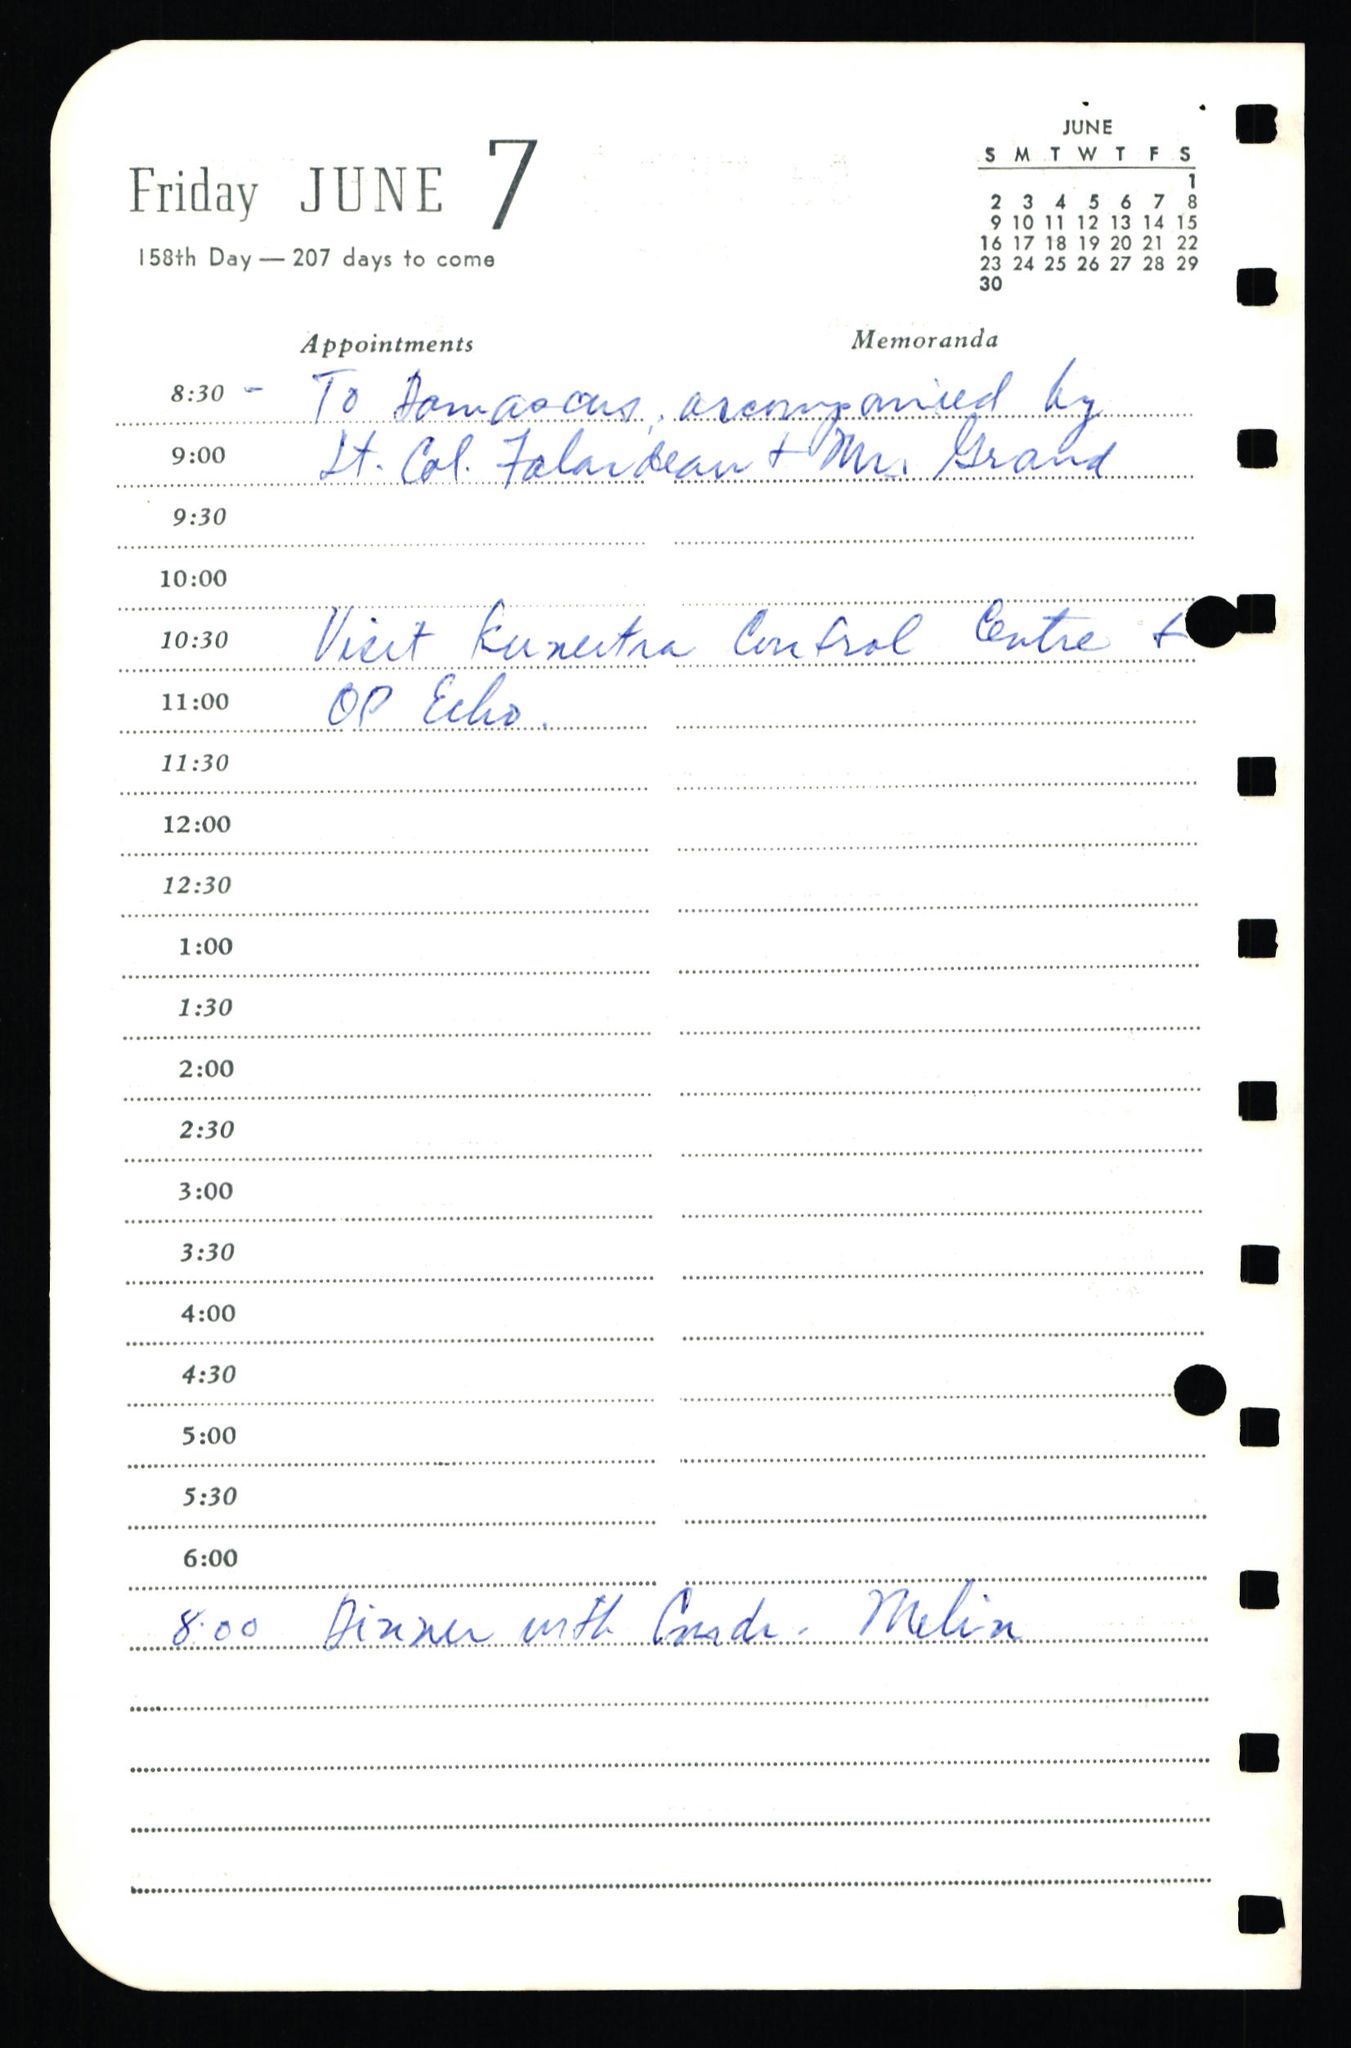 Friday JUNE 7
158th Day — 207 days to come
JUNE
S M T W T F S
1
2 3 4 5 6 7 8
9 10 11 12 13 14 15
16 17 18 19 20 21 22
23 24 25 26 27 28 29
30
Appointments Memoranda
8:30 - To Damascus, accompanied by
9:00 Lt. Col. Falardeau + Mr. Grand
9:30
10:00
10:30 Visit Kuneitra Control Centre +
11:00 OP Echo.
11:30
12:00
12:30
1:00
1:30
2:00
2:30
3:00
3:30
4:00
4:30
5:00
5:30
6:00
8:00 Dinner with Cmdr. Melin